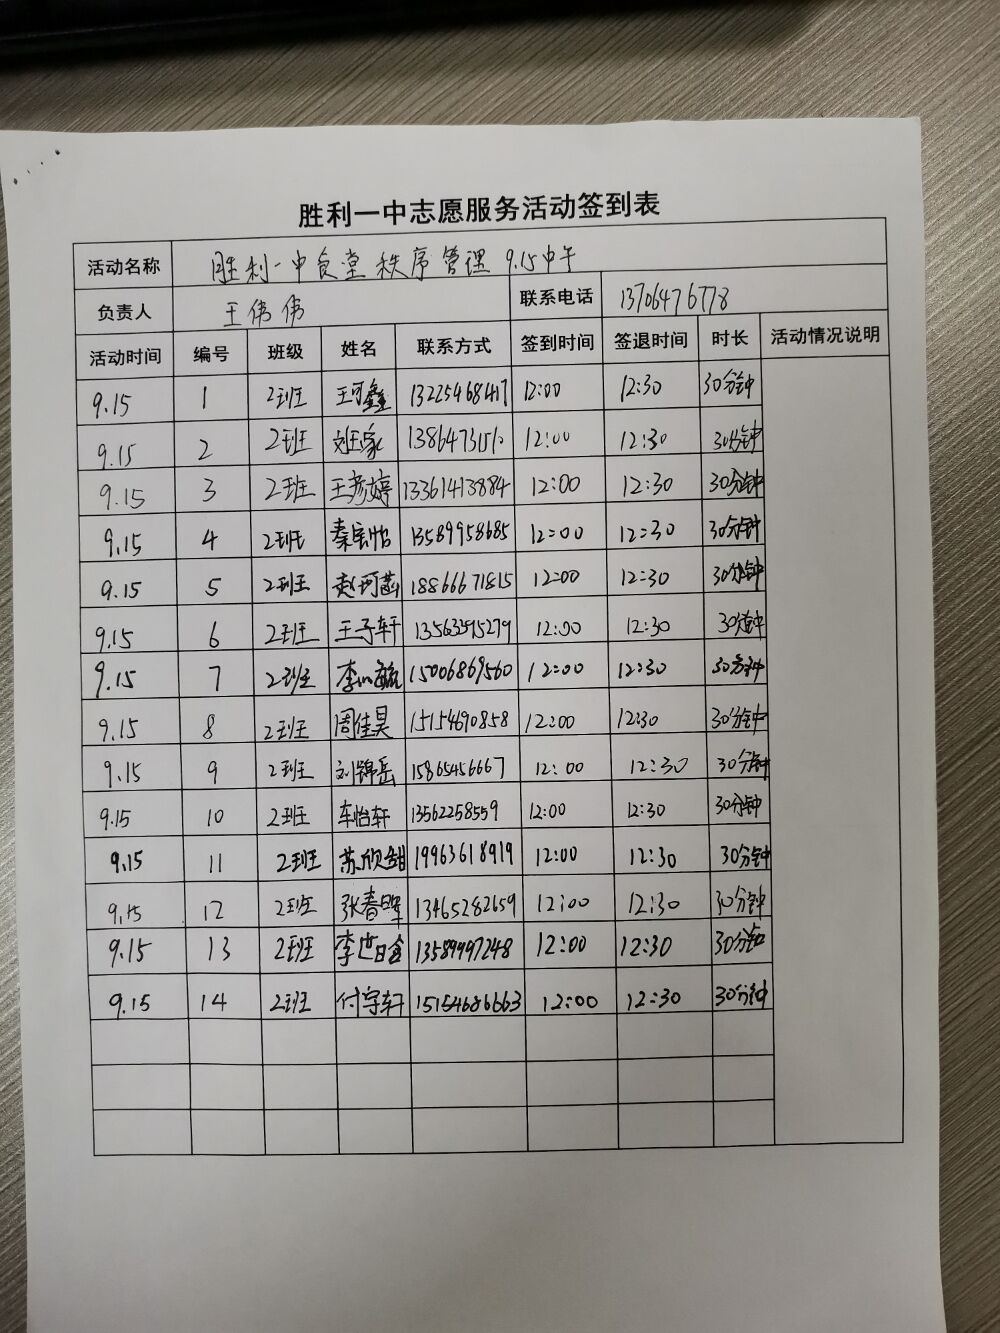 胜利一中志愿服务活动签到表
活动名称 胜利一中食堂秩序管理 9.15中午
负责人 王伟伟 联系电话 13706476778
活动时间 编号 班级 姓名 联系方式 签到时间 签退时间 时长 活动情况说明
9.15 1 2班 王可鑫 13225468417 12:00 12:30 30分钟
9.15 2 2班 12:00 12:30 30分钟
9.15 3 2班 王彦婷 13361413884 12:00 12:30 30分钟
9.15 4 2班 秦宏怡 13589958685 12:00 12:30 30分钟
9.15 5 2班 赵珂菡 18866671815 12:00 12:30 30分钟
9.15 6 2班 王子轩 12:00 12:30 30分钟
9.15 7 2班 15006869560 12:00 12:30 30分钟
9.15 8 2班 周佳昊 15154690858 12:00 12:30 30分钟
9.15 9 2班 刘锦岳 15865456667 12:00 12:30 30分钟
9.15 10 2班 车怡轩 13562258559 12:00 12:30 30分钟
9.15 11 2班 苏欣甜 19963618919 12:00 12:30 30分钟
9.15 12 2班 张春晖 13465282659 12:00 12:30 30分钟
9.15 13 2班 13589997248 12:00 12:30 30分钟
9.15 14 2班 付宇轩 15154686663 12:00 12:30 30分钟